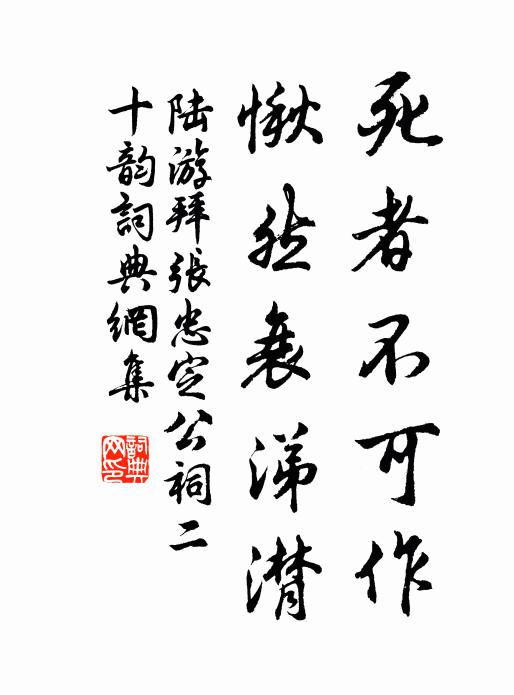 死者不可作
愀然衰涕潸
陆游拜張忠定公祠二
十韵詞典網集
詞典
网印